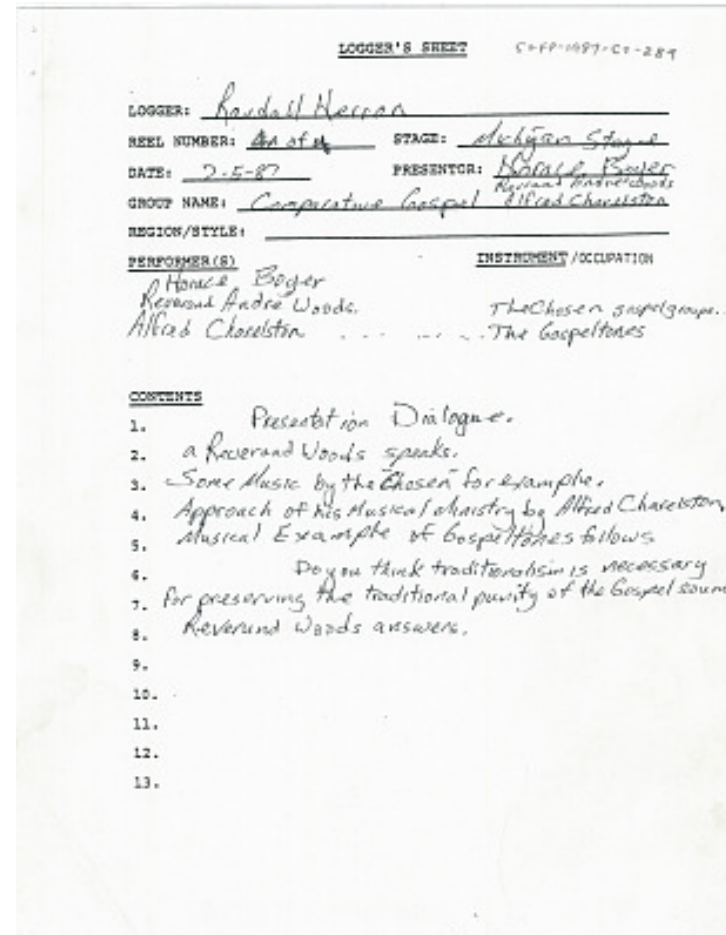 LOGGER'S SHEET SFFP-1987-CT-289
LOGGER: Randall Herron
REEL NUMBER: of STAGE: Michigan Stage
DATE: 7-5-87 PRESENTOR: Horace Boyer
Reverand Andre Woods
GROUP NAME: Comparative Gospel Alfred Charelston
REGION/STYLE:
PERFORMER(S) INSTRUMENT/OCCUPATION
Horace Boyer
Reverand Andre Woods. The Chosen gospel groupe.
Alfred Charelston ... ... .. The Gospeltones
CONTENTS
1. Presentation Dialogue.
2. a Reverand Woods speaks.
3. Some Music by the "Chosen" for example.
4. Approach of his Musical Ministry by Alfred Charelston,
5. Musical Example of Gospeltones follows
6. Do you think traditionalism is necessary
7. for preserving the traditional purity of the Gospel soun
8. Reverund Woods answers.
9.
10.
11.
12.
13.